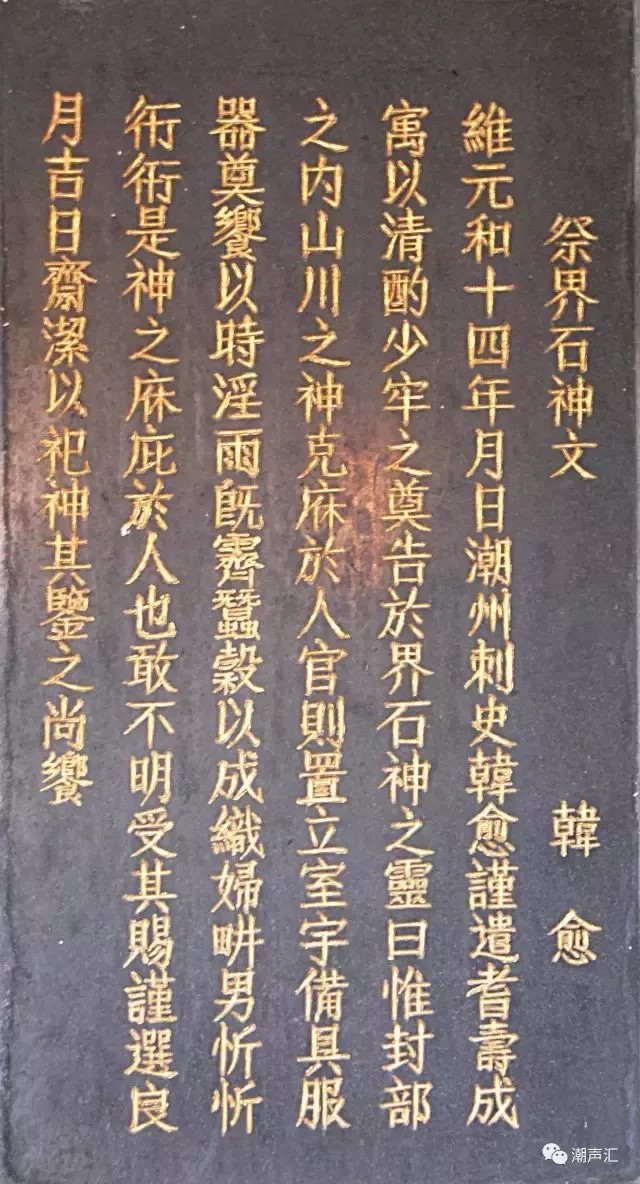 祭界石神文 韓愈
維元和十四年月日潮州刺史韓愈謹遣耆壽成
寓以清酌少牢之奠告於界石神之靈曰惟封部
之内山川之神克庥於人官則置立室宇備具服
器奠饗以時淫雨既霽蠶穀以成織婦畊男忻忻
衎衎是神之庥庇於人也敢不明受其賜謹選良
月吉日齋潔以祀神其鑒之尚饗
潮声汇